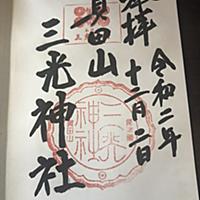 奉拝
令和二年
十二月二日
真田山
三光神社
三光
神社